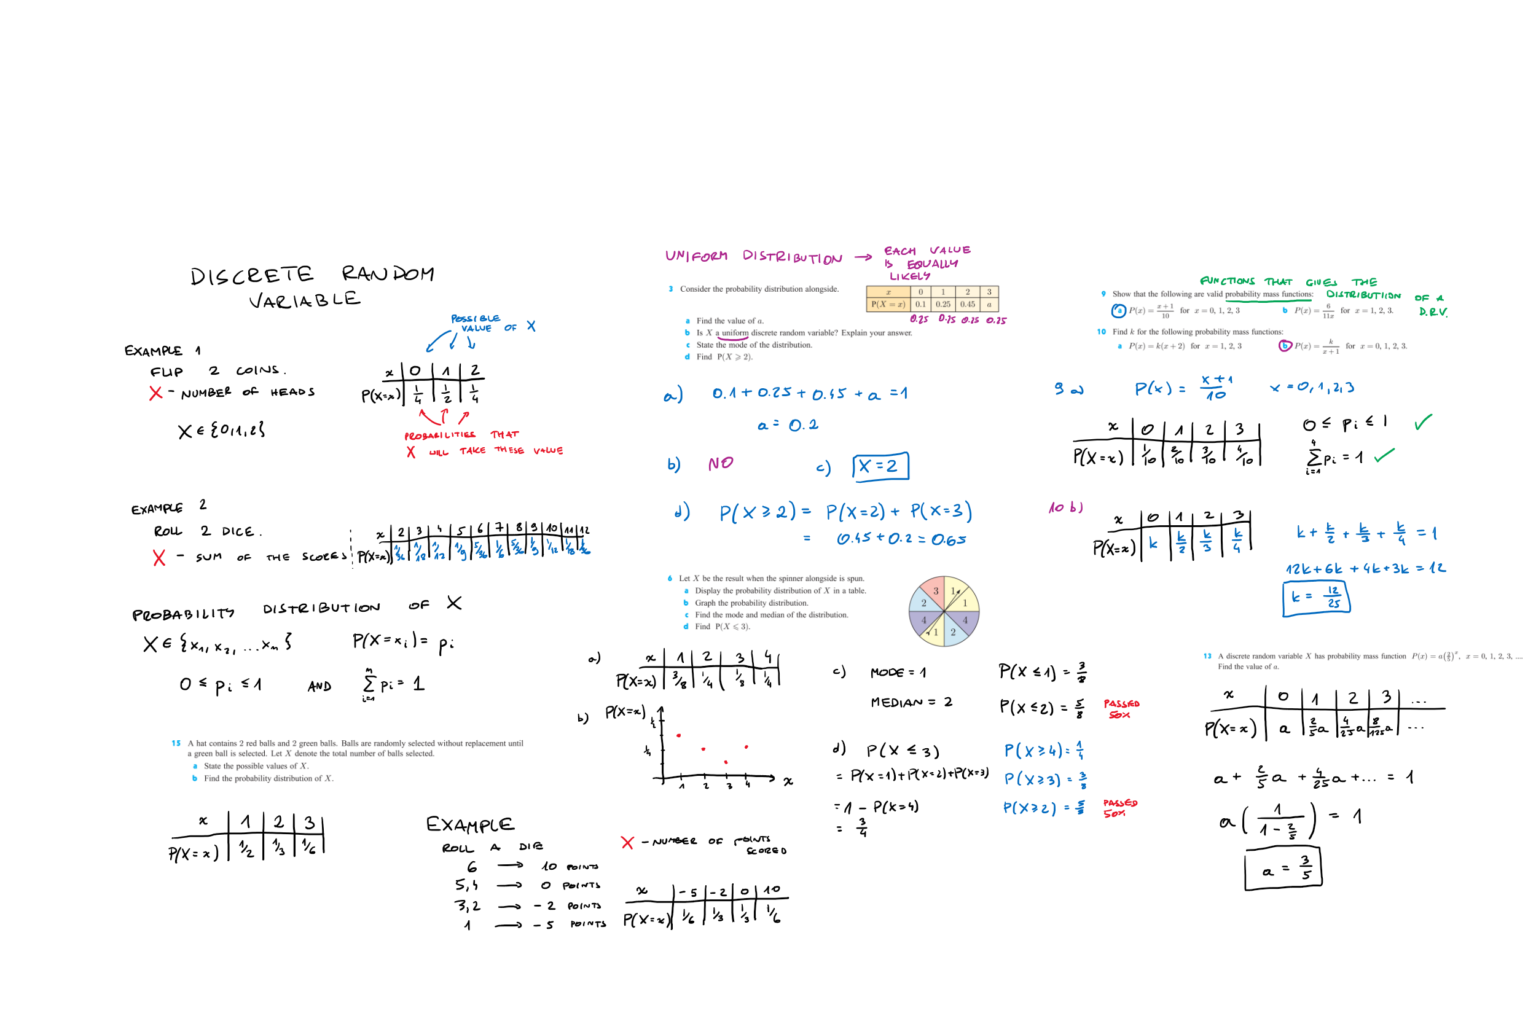 DISCRETE RANDOM
VARIABLE
EXAMPLE 1
FLIP 2 COINS.
X - NUMBER OF HEADS
X ∈ {0,1,2}
POSSIBLE
VALUE OF X
x | 0 | 1 | 2
P(X=x) | 1/4 | 1/2 | 1/4
PROBABILITIES THAT
X WILL TAKE THESE VALUE
EXAMPLE 2
ROLL 2 DICE.
X - SUM OF THE SCORES
x | 2 | 3 | 4 | 5 | 6 | 7 | 8 | 9 | 10 | 11 | 12
P(X=x) | 1/36 | 1/18 | 1/12 | 1/9 | 5/36 | 1/6 | 5/36 | 1/9 | 1/12 | 1/18 | 1/36
PROBABILITY DISTRIBUTION OF X
X ∈ {x₁, x₂, ... xₙ} P(X=xᵢ) = pᵢ
0 ≤ pᵢ ≤ 1 AND Σ pᵢ = 1
n
i=1
15 A hat contains 2 red balls and 2 green balls. Balls are randomly selected without replacement until
a green ball is selected. Let X denote the total number of balls selected.
a State the possible values of X.
b Find the probability distribution of X.
x | 1 | 2 | 3
P(X=x) | 1/2 | 1/3 | 1/6
EXAMPLE
ROLL A DIE
6 → 10 POINTS
5,4 → 0 POINTS
3,2 → -2 POINTS
1 → -5 POINTS
X - NUMBER OF POINTS
SCORED
x | -5 | -2 | 0 | 10
P(X=x) | 1/6 | 1/3 | 1/3 | 1/6
UNIFORM DISTRIBUTION → EACH VALUE
IS EQUALLY
LIKELY
3 Consider the probability distribution alongside.
x | 0 | 1 | 2 | 3
P(X = x) | 0.1 | 0.25 | 0.45 | a
0.25 0.25 0.25 0.25
a Find the value of a.
b Is X a uniform discrete random variable? Explain your answer.
c State the mode of the distribution.
d Find P(X ⩾ 2).
a) 0.1 + 0.25 + 0.45 + a = 1
a = 0.2
b) NO c) X = 2
d) P(X ≥ 2) = P(X=2) + P(X=3)
= 0.45 + 0.2 = 0.65
6 Let X be the result when the spinner alongside is spun.
a Display the probability distribution of X in a table.
b Graph the probability distribution.
c Find the mode and median of the distribution.
d Find P(X ⩽ 3).
3 1
2 1
4 4
1 2
a) x | 1 | 2 | 3 | 4
P(X=x) | 3/8 | 1/4 | 1/8 | 1/4
b) P(X=x)
1/2
1/4
1 2 3 4 x
c) MODE = 1
MEDIAN = 2
P(X ≤ 1) = 3/8
P(X ≤ 2) = 5/8 PASSED
50%
d) P(X ≤ 3)
= P(X=1) + P(X=2) + P(X=3)
= 1 - P(X=4)
= 3/4
P(X ≥ 4) = 1/4
P(X ≥ 3) = 3/8
P(X ≥ 2) = 5/8 PASSED
50%
FUNCTIONS THAT GIVES THE
DISTRIBUTIION OF A
D.R.V.
9 Show that the following are valid probability mass functions:
a P(x) = (x+1)/10 for x = 0, 1, 2, 3 b P(x) = 6/11x for x = 1, 2, 3.
10 Find k for the following probability mass functions:
a P(x) = k(x + 2) for x = 1, 2, 3 b P(x) = k/(x+1) for x = 0, 1, 2, 3.
9 a P(x) = (x+1)/10 x = 0,1,2,3
x | 0 | 1 | 2 | 3
P(X=x) | 1/10 | 2/10 | 3/10 | 4/10
0 ≤ pᵢ ≤ 1 ✓
4
Σ pᵢ = 1 ✓
i=1
10 b)
x | 0 | 1 | 2 | 3
P(X=x) | k | k/2 | k/3 | k/4
k + k/2 + k/3 + k/4 = 1
12k + 6k + 4k + 3k = 12
k = 12/25
13 A discrete random variable X has probability mass function P(x) = a(2/5)ˣ, x = 0, 1, 2, 3, ....
Find the value of a.
x | 0 | 1 | 2 | 3 | ...
P(X=x) | a | 2/5 a | 4/25 a | 8/125 a | ...
a + 2/5 a + 4/25 a + ... = 1
a ( 1/(1 - 2/5) ) = 1
a = 3/5